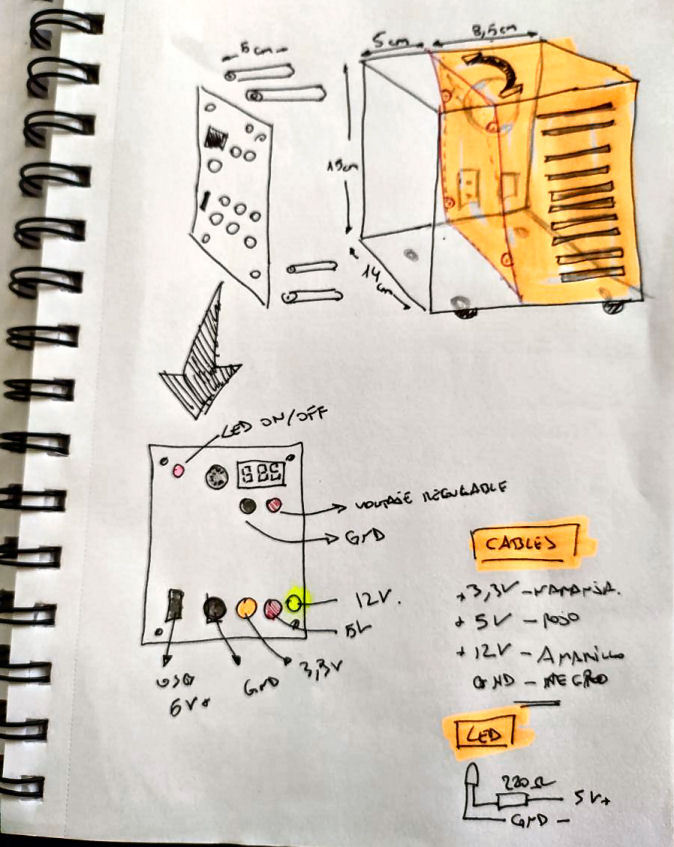 5cm
5cm
8,5cm
15cm
14
cm
LED ON/OFF
VOLTAGE REGULABLE
GND
12V.
5V
3,3V
GND
USB
CABLES
+3,3V - NARANJA.
+ 5V - ROJO
+ 12V - AMARILLO
GND - NEGRO
LED
220Ω
5V+
GND -